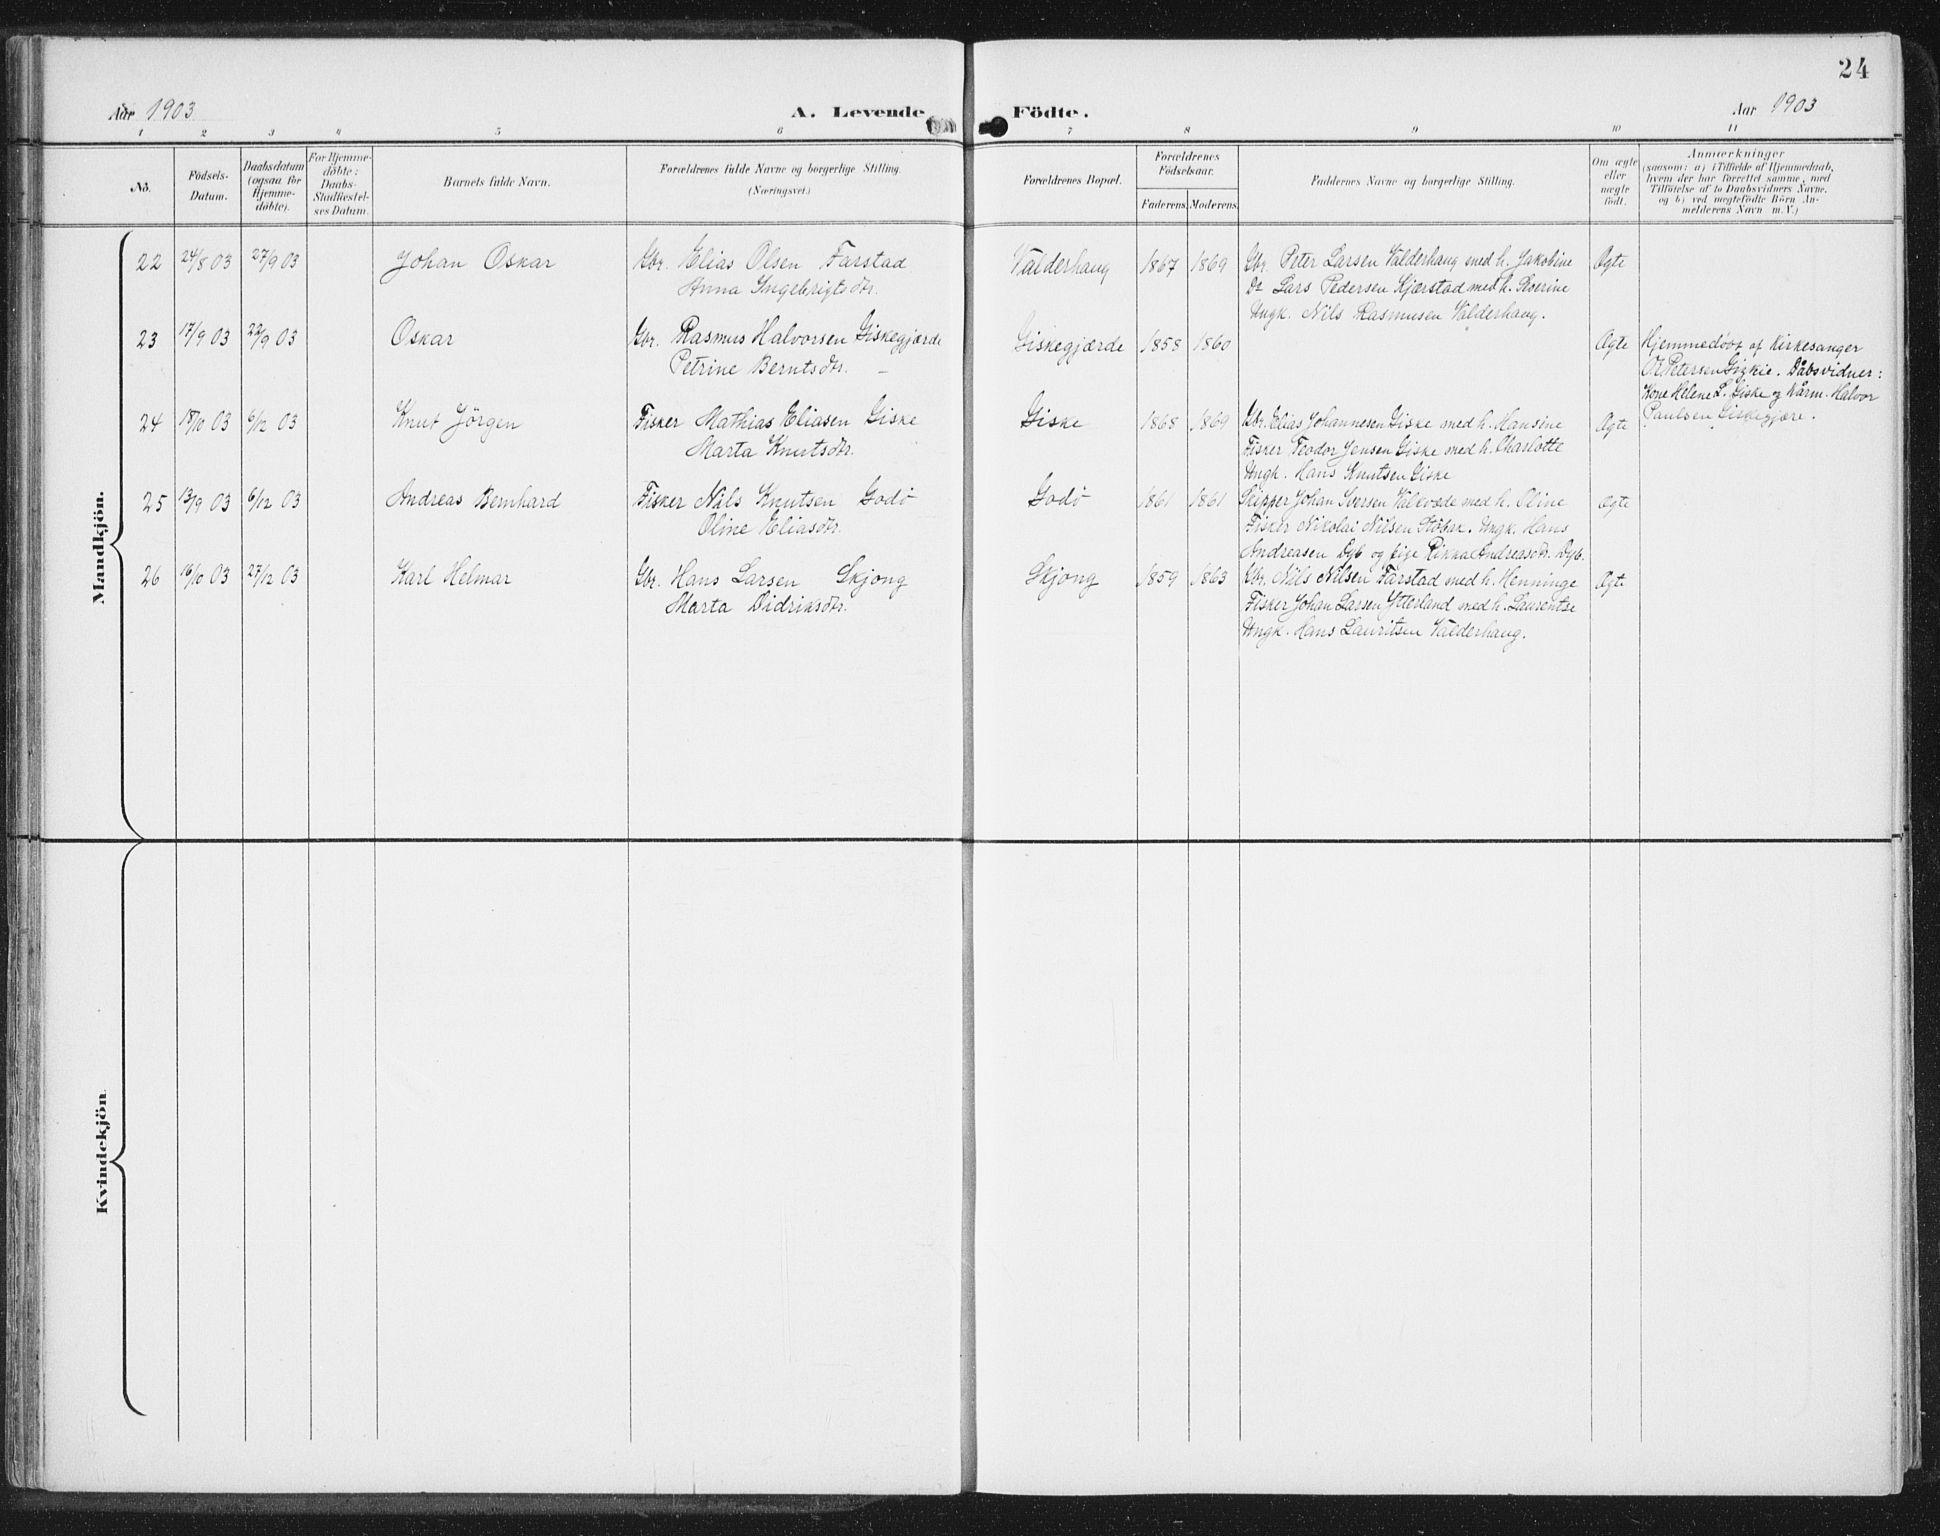 24
Aar 1903
A. Levende Födte.
Aar 1903
1 2 3 4 5 6 7 8 9 10 11
No.
Födsels-
Datum.
Daabsdatum
(ogsaa for
Hjemme-
döbte).
For Hjemme-
döbte:
Daabs-
Stadfæstel-
ses Datum.
Barnets fulde Navn.
Forældrenes fulde Navne og borgerlige Stilling.
(Næringsvei.)
Forældrenes Bopæl.
Forældrenes
Födselsaar.
Faderens. Moderens.
Faddernes Navne og borgerlige Stilling.
Om ægte
eller
uægte
födt.
Anmærkninger
(saasom: a) i Tilfælde af Hjemmedaab,
hvem der har forrettet samme, med
Tilföielse af to Daabsvidners Navne,
og b) ved uægtefödte Börn An-
melderens Navn m. V.)
Mandkjön.
22 24/8 03 27/9 03 Johan Oskar Gbr. Elias Olsen Farstad Valderhaug 1867 1869 Gbr. Peter Larsen Valderhaug med h. Jakobine Ægte
Anna Ingebrigtsdtr. Do Lars Pedersen Kjærstad med h. Severine
Ungk. Nils Rasmusen Valderhaug.
23 17/9 03 22/9 03 Oskar Gbr. Rasmus Halvorsen Giskegjærde Giskegjærde 1858 1860 Ægte Hjemmedøbt af Kirkesanger
Petrine Berntsdtr. – Petersen Giskie. Dåbsvidner:
Kone Helene L. Giske og Kårm. Halvor
Paulsen Giskegjære.
24 18/10 03 6/12 03 Knut Jörgen Fisker Mathias Eliasen Giske Giske 1868 1869 Gbr. Elias Johannesen Giske med h. Hansine Ægte
Marta Knutsdtr. Fisker Teodor Jensen Giske med h. Charlotte
Ungk. Hans Knutsen Giske
25 13/9 03 6/12 03 Andreas Bernhard Fisker Nils Knutsen Godø Godø 1861 1861 Skipper Johan Iversen Valkvæde med h. Oline Ægte
Oline Eliasdtr. Fisker Nikolai Nilsen Støbak. Ungk. Hans
Andreasen Dyb og pige Rikka Andreasdtr. Dyb.
26 16/10 03 27/12 03 Karl Helmar Gbr. Hans Larsen Skjong Skjong 1859 1863 Gbr. Nils Nilsen Farstad med h. Henninge Ægte
Marta Didriksdtr. Fisker Johan Larsen Ytterland med h. Laurentse
Ungk. Hans Lauritsen Valderhaug.
Kvindekjön.